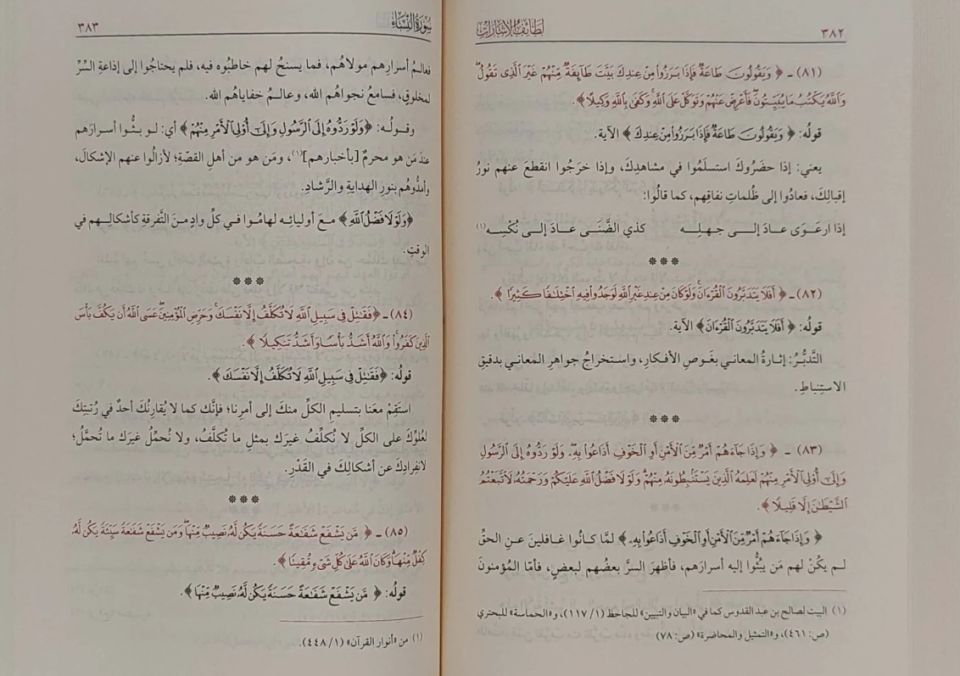 ٣٨٢
لطائف الإشارات
(٨١) - ﴿ وَيَقُولُونَ طَاعَةٌ فَإِذَا بَرَزُوا مِنْ عِندِكَ بَيَّتَ طَائِفَةٌ مِنْهُمْ غَيْرَ الَّذِي تَقُولُ
وَاللَّهُ يَكْتُبُ مَا يُبَيِّتُونَ فَأَعْرِضْ عَنْهُمْ وَتَوَكَّلْ عَلَى اللَّهِ وَكَفَى بِاللَّهِ وَكِيلًا ﴾.
قولُه: ﴿ وَيَقُولُونَ طَاعَةٌ فَإِذَا بَرَزُوا مِنْ عِندِكَ ﴾ الآية.
يعني: إذا حضَرُوكَ استسلَمُوا في مشاهدِكَ، وإذا خرَجُوا انقطعَ عنهم نورُ
إقبالكَ، فعادُوا إلى ظُلماتِ نفاقِهم، كما قالُوا:
إذا ارعَوَى عادَ إلى جهلِه كذي الضَّنَى عادَ إلى نُكْسِه(١)
***
(٨٢) - ﴿ أَفَلَا يَتَدَبَّرُونَ الْقُرْءَانَ وَلَوْ كَانَ مِنْ عِندِ غَيْرِ اللَّهِ لَوَجَدُوا فِيهِ اخْتِلَافًا كَثِيرًا ﴾.
قولُه: ﴿ أَفَلَا يَتَدَبَّرُونَ الْقُرْءَانَ ﴾ الآية.
التَّدبُّرُ: إثارةُ المعاني بغَوصِ الأفكارِ، واستخراجُ جواهرِ المعاني بدقيقِ
الاستنباطِ.
***
(٨٣) - ﴿ وَإِذَا جَاءَهُمْ أَمْرٌ مِّنَ الْأَمْنِ أَوِ الْخَوْفِ أَذَاعُوا بِهِ وَلَوْ رَدُّوهُ إِلَى الرَّسُولِ
وَإِلَى أُولِي الْأَمْرِ مِنْهُمْ لَعَلِمَهُ الَّذِينَ يَسْتَنبِطُونَهُ مِنْهُمْ وَلَوْلَا فَضْلُ اللَّهِ عَلَيْكُمْ وَرَحْمَتُهُ لَاتَّبَعْتُمُ
الشَّيْطَانَ إِلَّا قَلِيلًا ﴾.
﴿ وَإِذَا جَاءَهُمْ أَمْرٌ مِّنَ الْأَمْنِ أَوِ الْخَوْفِ أَذَاعُوا بِهِ ﴾ لمَّا كانُوا غافلينَ عنِ الحقِّ
لم يكُنْ لهم مَن يبُثُّوا إليه أسرارَهم، فأظهرَ السرَّ بعضُهم لبعضٍ، فأمَّا المؤمنونَ
(١) البيت لصالح بن عبد القدوس كما في «البيان والتبيين» للجاحظ (١/ ١١٧)، و«الحماسة» للبحتري
(ص: ٤٦١)، و«التمثيل والمحاضرة» (ص: ٧٨)
سورة النساء
٣٨٣
فعالمُ أسرارِهم مولاهُم، فما يسنحُ لهم خاطبُوه فيه، فلم يحتاجُوا إلى إذاعةِ السِّرِّ
لمخلوقٍ، فسامعُ نجواهُم الله، وعالمُ خفاياهُم الله.
وقولُه: ﴿وَلَوْ رَدُّوهُ إِلَى الرَّسُولِ وَإِلَى أُولِي الْأَمْرِ مِنْهُمْ﴾ أي: لو بثُّوا أسرارَهم
عندَ مَن هو محرمٌ [بأخبارهم](١)، ومَن هو من أهلِ القصَّةِ؛ لأزالُوا عنهم الإشكالَ،
وأمدُّوهُم بنورِ الهدايةِ والرَّشادِ.
﴿وَلَوْلَا فَضْلُ اللَّهِ﴾ معَ أوليائِه لهامُوا في كلِّ وادٍ منَ التَّفرقةِ كأشكالِهم في
الوقتِ.
***
(٨٤) - ﴿فَقَاتِلْ فِي سَبِيلِ اللَّهِ لَا تُكَلَّفُ إِلَّا نَفْسَكَ وَحَرِّضِ الْمُؤْمِنِينَ عَسَى اللَّهُ أَن يَكُفَّ بَأْسَ
الَّذِينَ كَفَرُوا وَاللَّهُ أَشَدُّ بَأْسًا وَأَشَدُّ تَنكِيلًا ﴾.
قولُه: ﴿فَقَاتِلْ فِي سَبِيلِ اللَّهِ لَا تُكَلَّفُ إِلَّا نَفْسَكَ ﴾.
استَقِمْ معَنا بتسليمِ الكلِّ منكَ إلى أمرِنا؛ فإنَّك كما لا يُقارِنُكَ أحدٌ في رُتبتِكَ
لعُلوِّكَ على الكلِّ لا نُكلِّفُ غيرَكَ بمثلِ ما تُكلَّفُ، ولا نُحمِّلُ غيرَك ما تُحمَّلُ؛
لانفرادِكَ عن أشكالِكَ في القَدْرِ.
***
(٨٥) - ﴿ مَّن يَشْفَعْ شَفَاعَةً حَسَنَةً يَكُن لَّهُ نَصِيبٌ مِّنْهَا وَمَن يَشْفَعْ شَفَاعَةً سَيِّئَةً يَكُن لَّهُ
كِفْلٌ مِّنْهَا وَكَانَ اللَّهُ عَلَى كُلِّ شَيْءٍ مُّقِيتًا ﴾.
قولُه: ﴿ مَّن يَشْفَعْ شَفَاعَةً حَسَنَةً يَكُن لَّهُ نَصِيبٌ مِّنْهَا ﴾.
(١) من «أنوار القرآن» (١/ ٤٤٨).